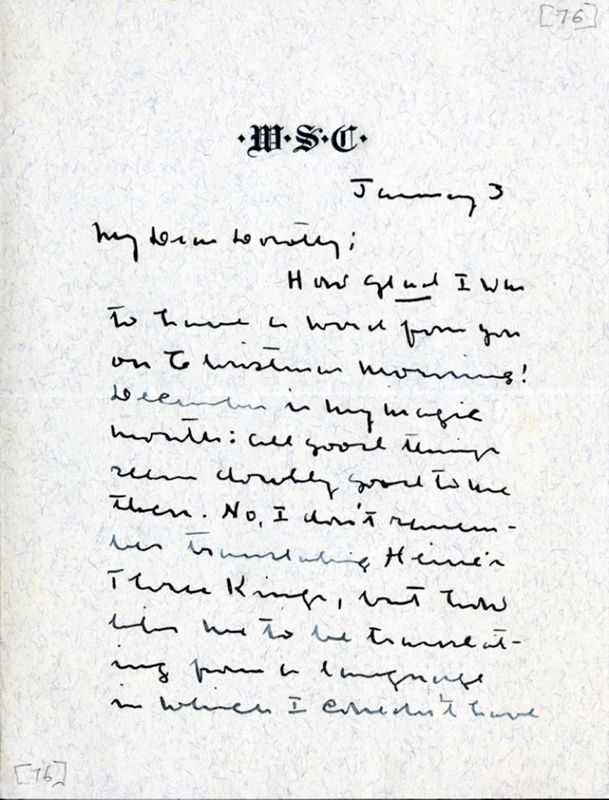 [76]
·W·S·C·
January 3
My Dear Dorothy;
How glad I was
to have a word from you
on Christmas morning!
December is my magic
month: all good things
seem doubly good to me
then. No, I don't remem-
ber translating Heine's
Three Kings, but how
like me to be translat-
ing from a language
in which I couldn't have
[76]